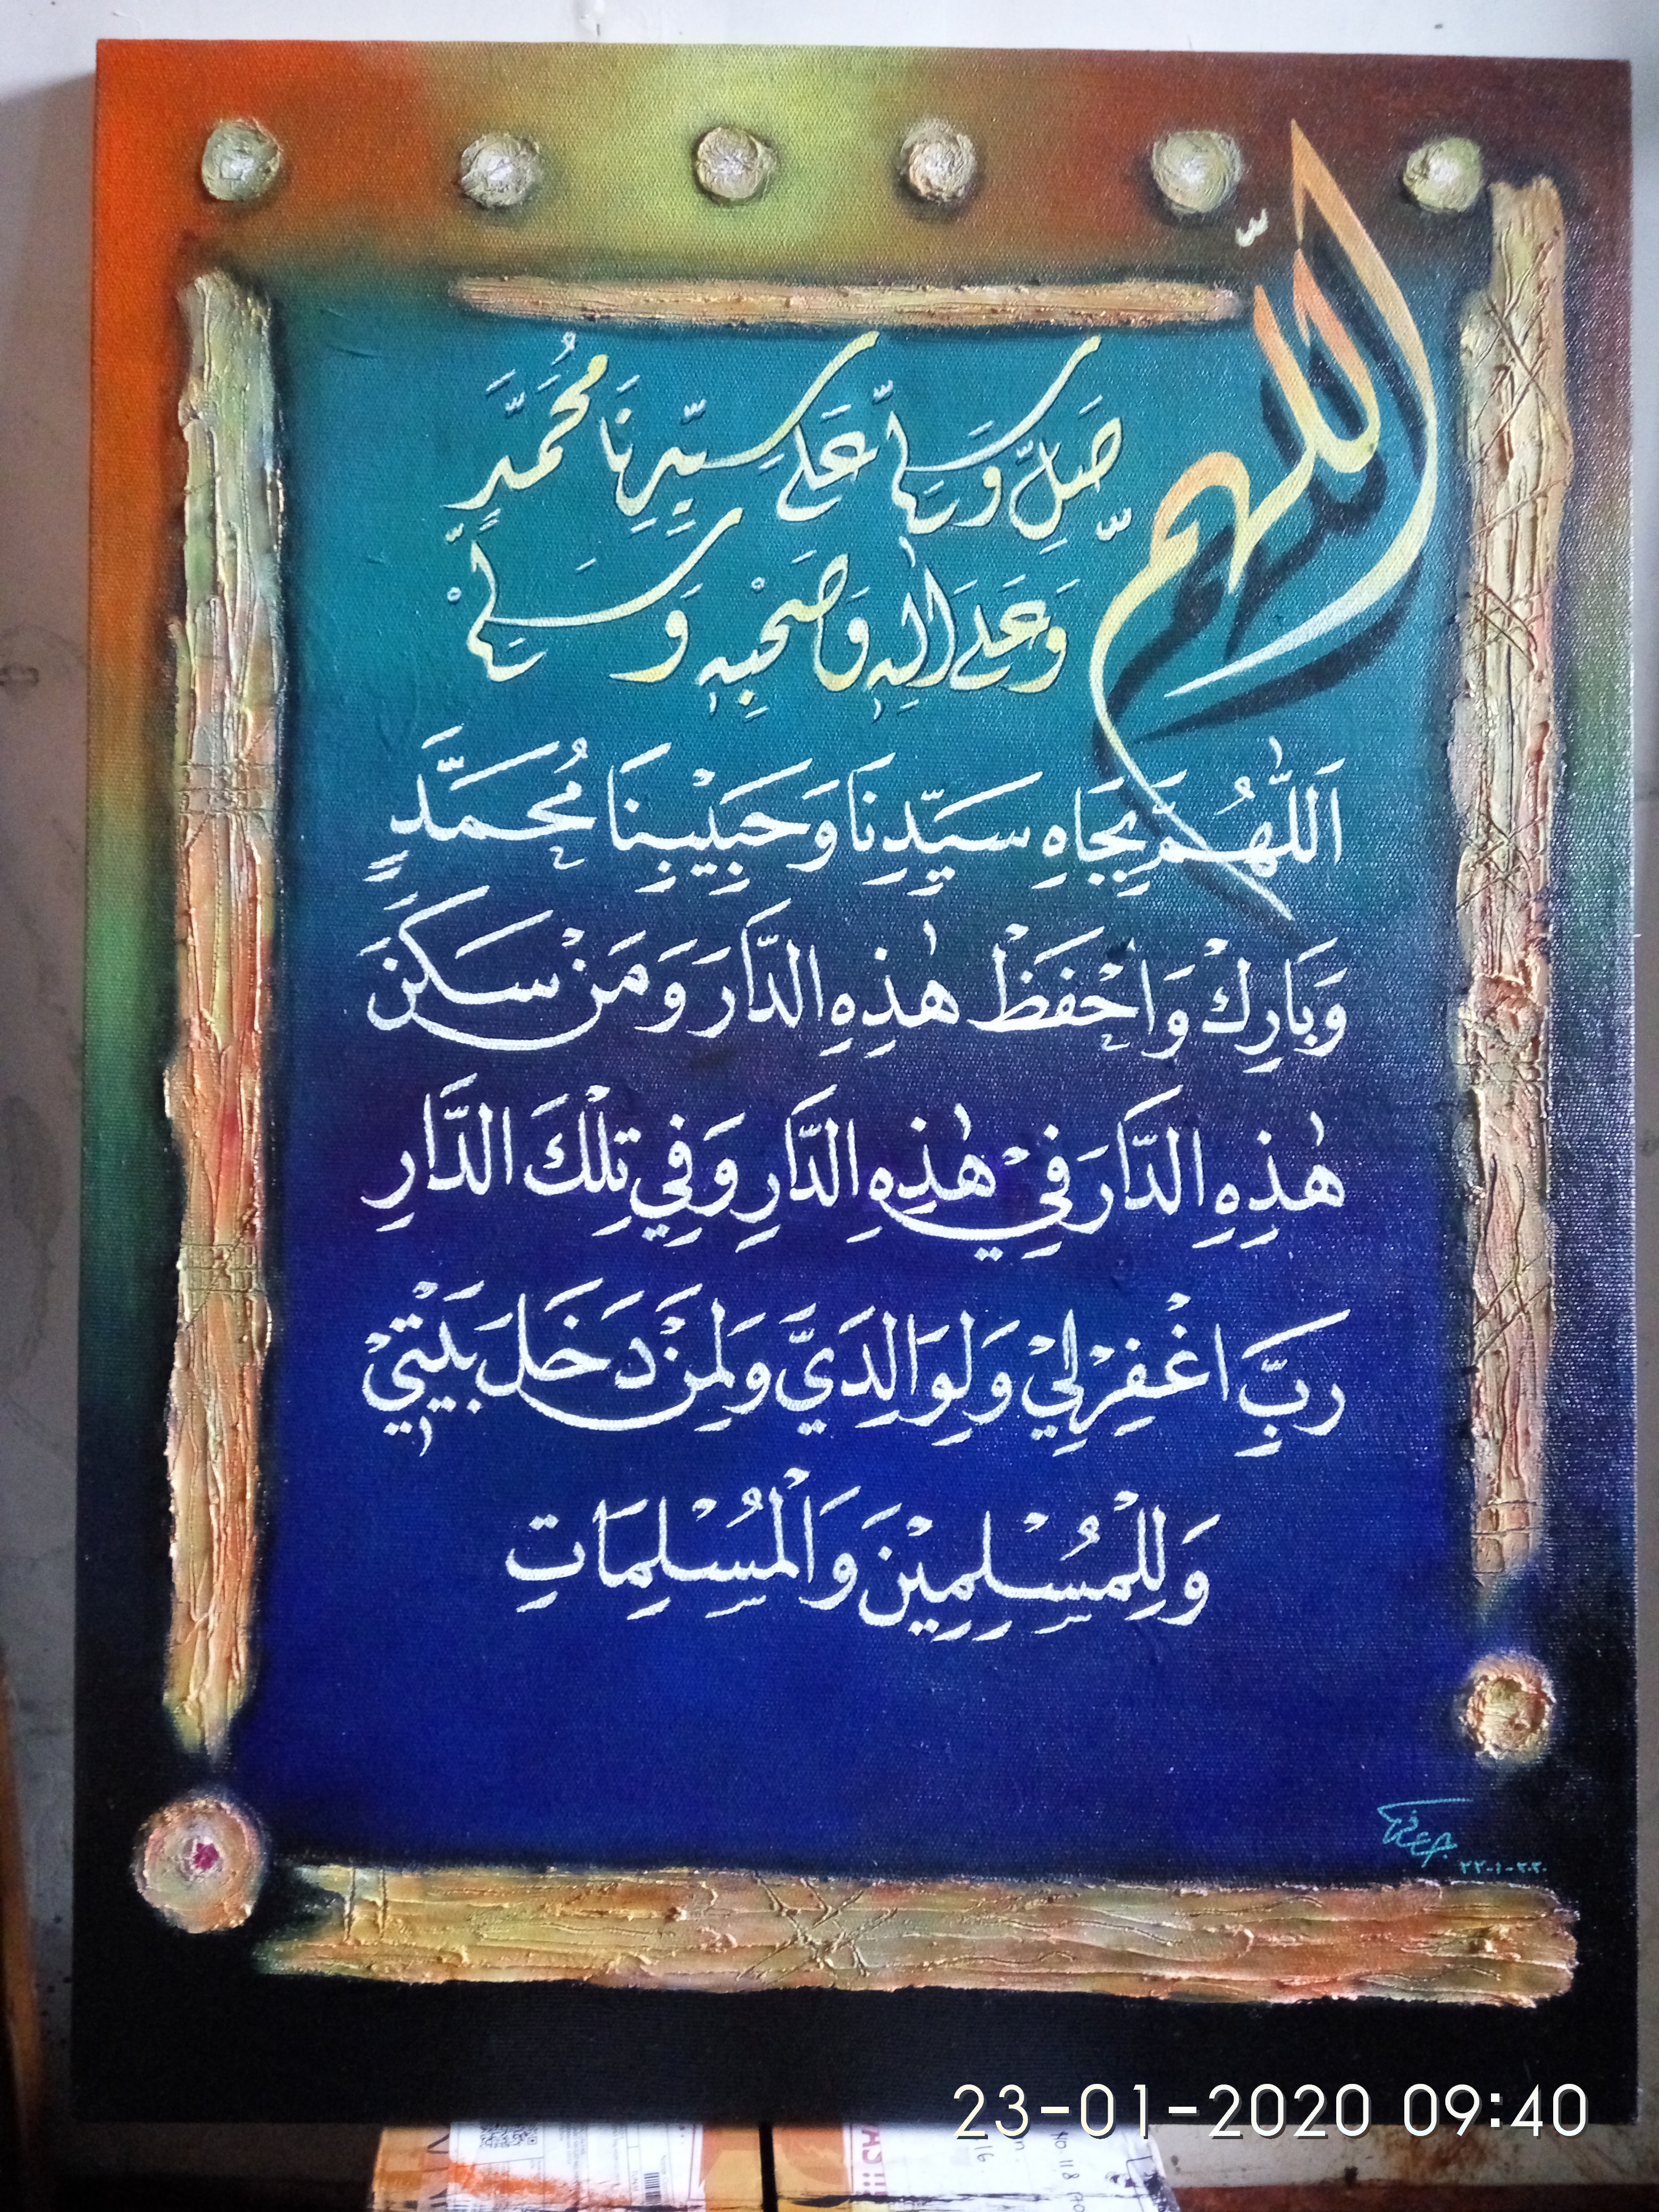 اللهم
صَلِّ وَسَلِّمْ عَلَى سَيِّدِنَا مُحَمَّدٍ
وَعَلَى اٰلِهٖ وَصَحْبِهٖ وَسَلِّمْ
اَللّٰهُمَّ بِجَاهِ سَيِّدِنَا وَحَبِيْبِنَا مُحَمَّدٍ
وَبَارِكْ وَاحْفَظْ هٰذِهِ الدَّارَ وَمَنْ سَكَنَ
هٰذِهِ الدَّارَ فِيْ هٰذِهِ الدَّارِ وَفِي تِلْكَ الدَّارِ
رَبِّ اغْفِرْ لِيْ وَلِوَالِدَيَّ وَلِمَنْ دَخَلَ بَيْتِيْ
وَلِلْمُسْلِمِيْنَ وَالْمُسْلِمَاتِ
٢٢-١-٢٠٢٠
23-01-2020 09:40